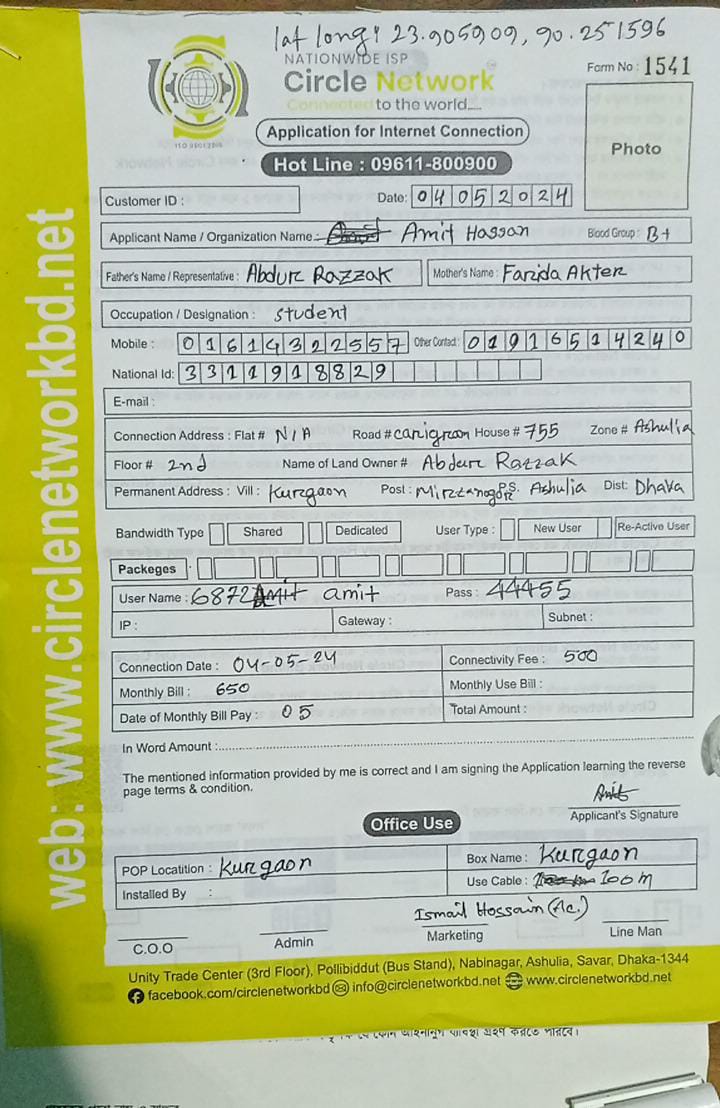 lat long: 23.905909, 90.251596
NATIONWIDE ISP
Circle Network
Connected to the world....
ISO 9001:2015
Form No : 1541
Application for Internet Connection
Hot Line : 09611-800900
Photo
Customer ID :
Date: 04052024
Applicant Name / Organization Name : Amit Hassan Blood Group : B+
Father's Name / Representative : Abdur Razzak Mother's Name : Farida Akter
Occupation / Designation : Student
Mobile : 01614322557 Other Contact : 01916514240
National Id: 3311918829
E-mail :
Connection Address : Flat # N/A Road # carigram House # 755 Zone # Ashulia
Floor # 2nd Name of Land Owner # Abdur Razzak
Permanent Address : Vill : Kurgaon Post : Mirzanogor P.S. Ashulia Dist: Dhaka
Bandwidth Type Shared Dedicated User Type : New User Re-Active User
Packeges :
User Name : 6872 amit Pass : 44455
IP : Gateway : Subnet :
Connection Date : 04-05-24 Connectivity Fee : 500
Monthly Bill : 650 Monthly Use Bill :
Date of Monthly Bill Pay : 05 Total Amount :
In Word Amount :
The mentioned information provided by me is correct and I am signing the Application learning the reverse
page terms & condition.
Amit
Applicant's Signature
Office Use
POP Locatition : Kurgaon Box Name : Kurgaon
Installed By : Use Cable : 100m
Ismail Hossain (Ac.)
C.O.O Admin Marketing Line Man
Unity Trade Center (3rd Floor), Pollibiddut (Bus Stand), Nabinagar, Ashulia, Savar, Dhaka-1344
facebook.com/circlenetworkbd info@circlenetworkbd.net www.circlenetworkbd.net
web: www.circlenetworkbd.net
কোন আইনানুগ ব্যবস্থা গ্রহণ করতে পারবে।